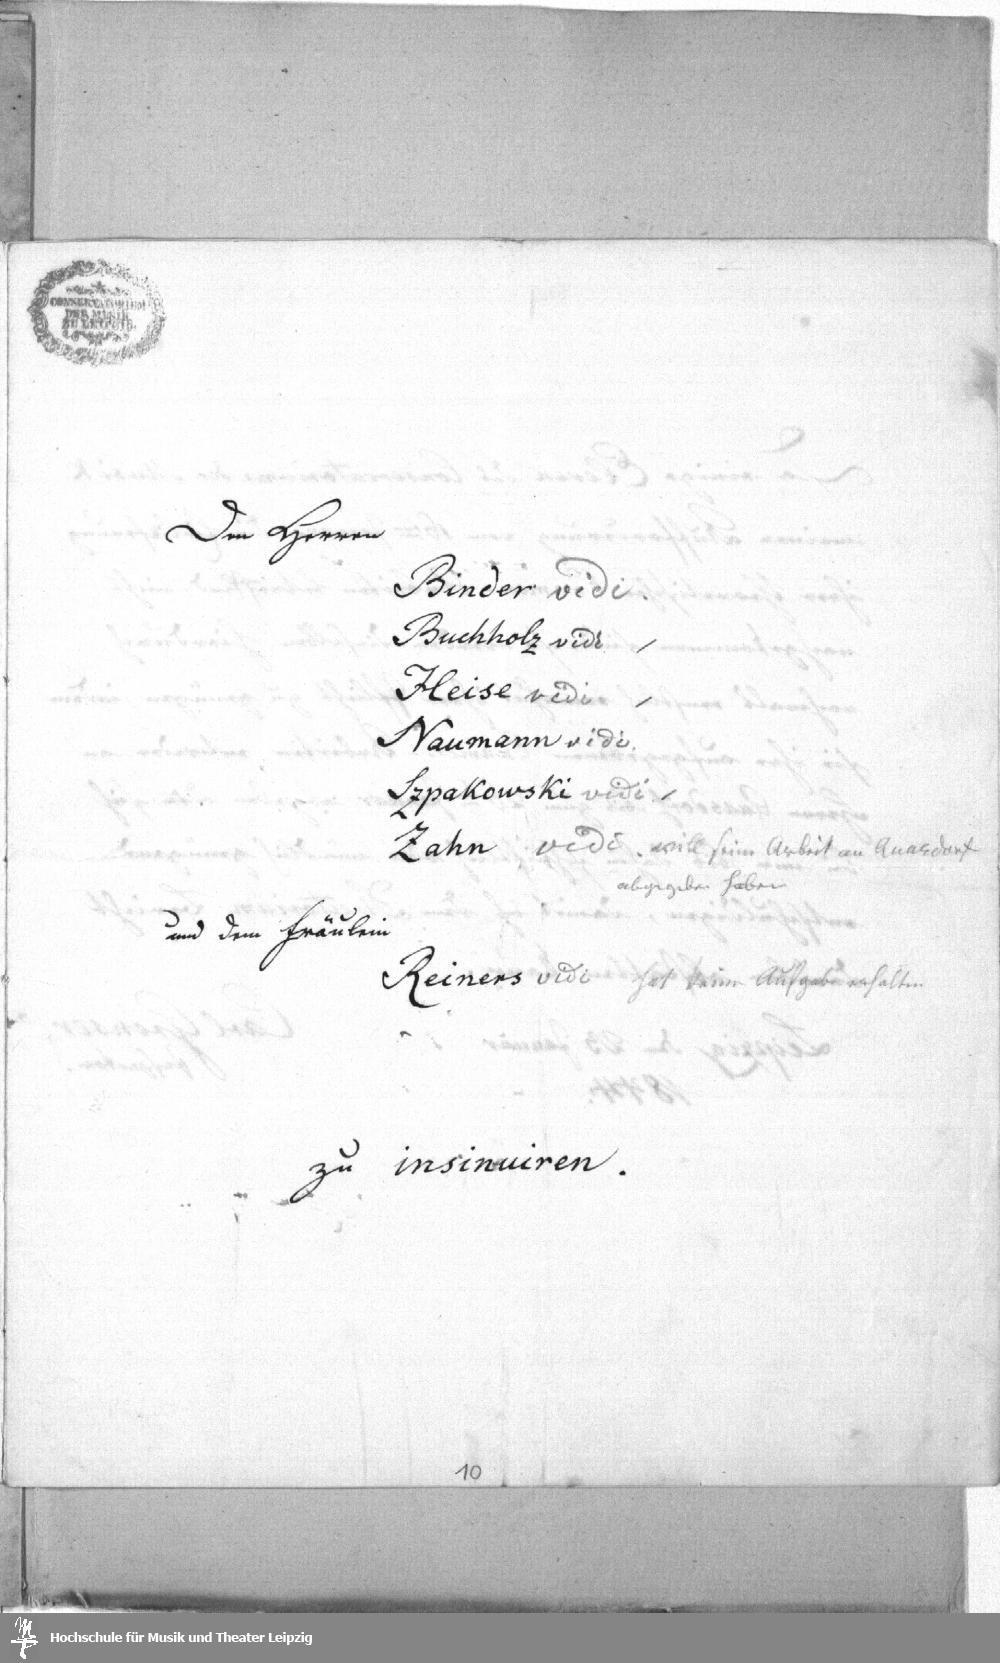 CONSERVATORIUM
DER MUSIK
ZU LEIPZIG.
Den Herren
Binder vidi.
Buchholz vidi /
Heise vidi /
Naumann vidi.
Szpakowski vidi. /
Zahn vidi. will seine Arbeit an Quasdorf
abgegeben haben
und dem Fräulein
Reiners vidi hat keine Aufgabe erhalten
zu insinuiren.
10
Hochschule für Musik und Theater Leipzig